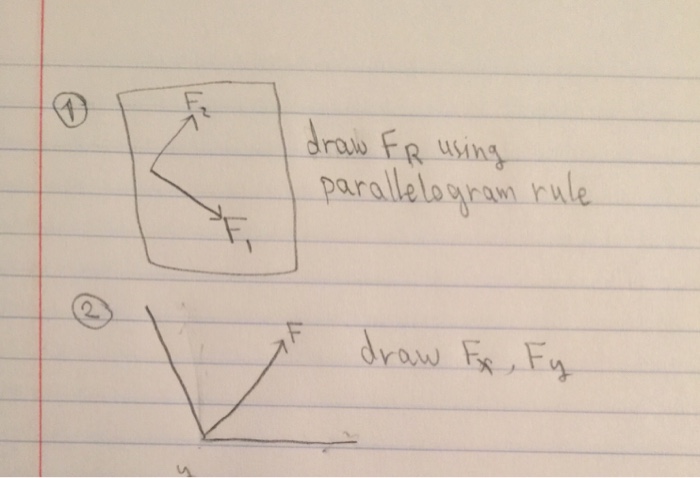 ①
F₂
draw F_R using
parallelogram rule
F₁
②
F
draw Fₓ, F_y
y